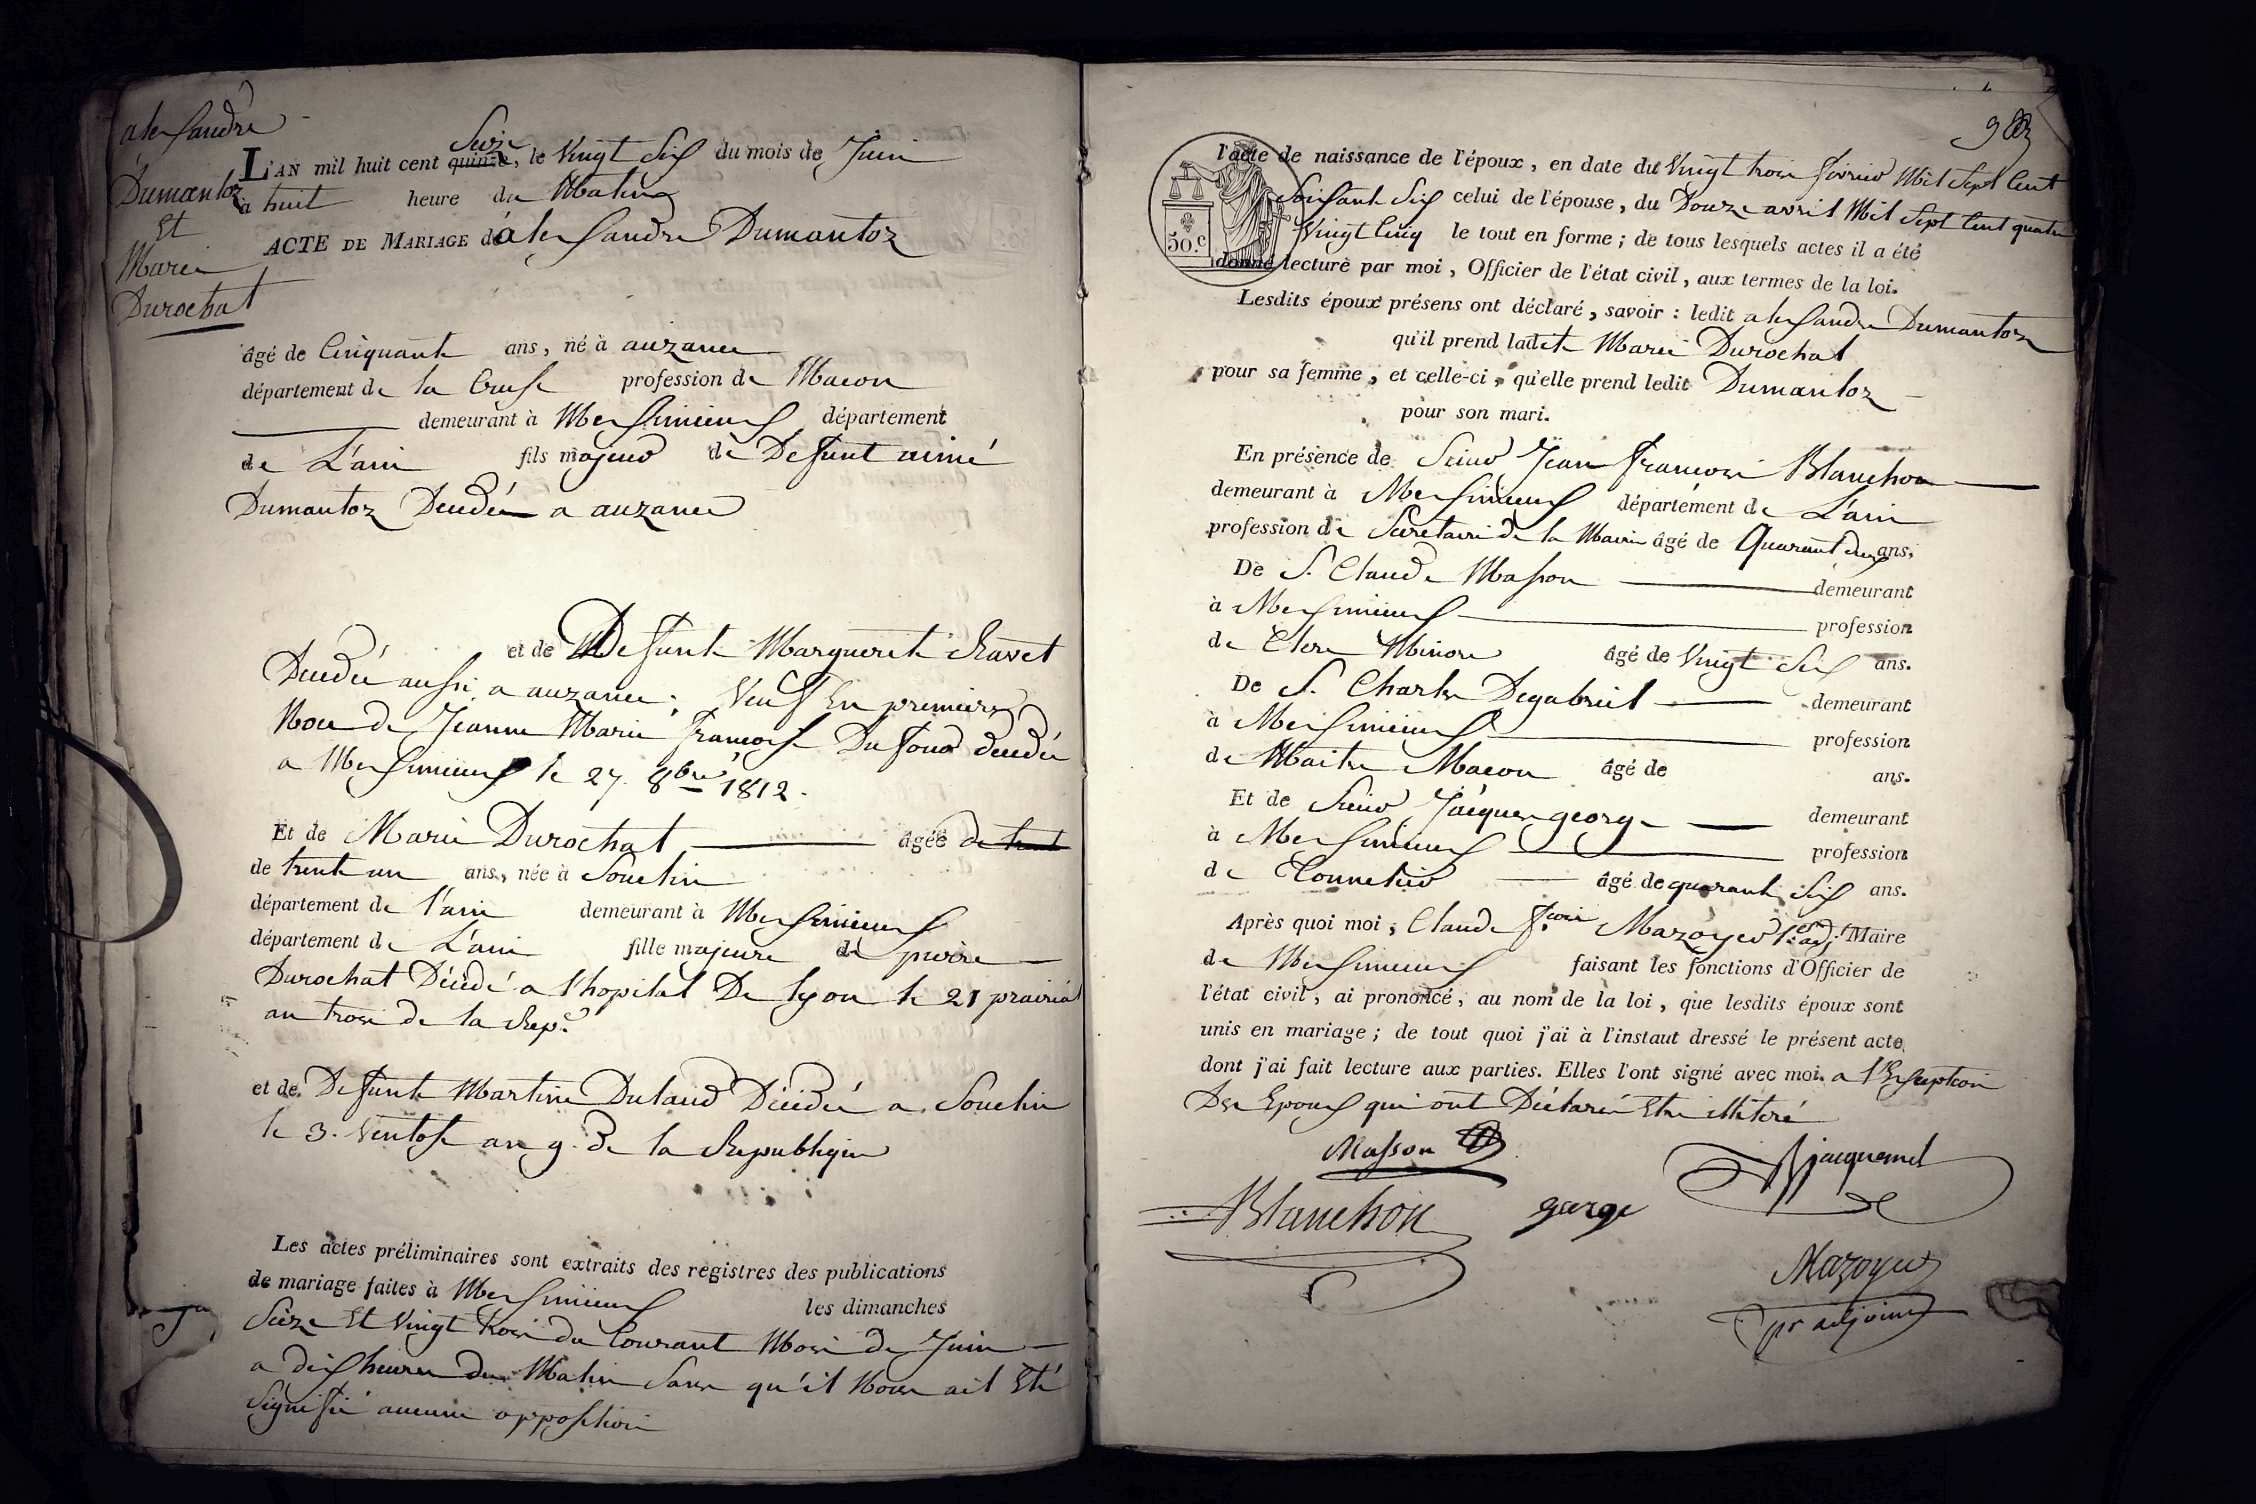 alexandre
Dumantoz
Et
Marie
Durochat
L'AN mil huit cent quinze, Seize le Vingt Six du mois de Juin
à huit heure du Matin
ACTE DE MARIAGE de alexandre Dumantoz
âgé de Cinquante ans, né à auzance
département de la Creuse profession de Macon
demeurant à Meximieux département
de L'ain fils majeur de Defunt aimé
Dumantoz Decedé a auzance
et de Defunte Marguerite Ravet
Decedée aussi a auzance; Veuf En premiere
Noce de Jeanne Marie Francoise Dufour decedée
a Meximieux le 27. 8bre 1812.
Et de Marie Durochat âgée de trente
de trente un ans, née à Souclin
département de l'ain demeurant à Meximieux
département de L'ain fille majeure de pierre
Durochat Décédé a l'hopital De lyon le 21 prairial
an trois de la Rep.e
et de Defunte Martine Dulaud Décédée a Souclin
le 3. Ventose an 9. de la Republique
Les actes préliminaires sont extraits des registres des publications
de mariage faites à Meximieux les dimanches
Seize Et Vingt trois du Courant Mois de Juin
a dix heures du Matin Sans qu'il Nous ait Eté
Signifié aucune opposition
l'acte de naissance de l'époux, en date du Vingt trois fevrier Mil Sept Cent
Soixante Six celui de l'épouse, du Douze avril Mil Sept Cent quatre
Vingt Cinq le tout en forme; de tous lesquels actes il a été
50.c
donné lecture par moi, Officier de l'état civil, aux termes de la loi.
Lesdits époux présens ont déclaré, savoir: ledit alexandre Dumantoz
qu'il prend ladite Marie Durochat
pour sa femme, et celle-ci, qu'elle prend ledit Dumantoz
pour son mari.
En présence de Sieur Jean Francois Blanchon
demeurant à Meximieux département de L'ain
profession de Secretaire de la Mairie âgé de Quarante deux ans,
De S. Claude Masson demeurant
à Meximieux profession
de Clerc Minore âgé de Vingt Six ans.
De S. Charles Degabriel demeurant
à Meximieux profession
de Maitre Macon âgé de ans.
Et de Sieur Jacques george demeurant
à Meximieux profession
de Tonnelier âgé de quarante Six ans.
Après quoi moi, Claude f.cois Mazoyer 1.er adj.t Maire
de Meximieux faisant les fonctions d'Officier de
l'état civil, ai prononcé, au nom de la loi, que lesdits époux sont
unis en mariage; de tout quoi j'ai à l'instaut dressé le présent acte
dont j'ai fait lecture aux parties. Elles l'ont signé avec moi. a l'Exception
Des Epoux qui ont Déclaré Etre illitéré
Masson
jacquemet
Blanchon george
Mazoyer
pr adjoint